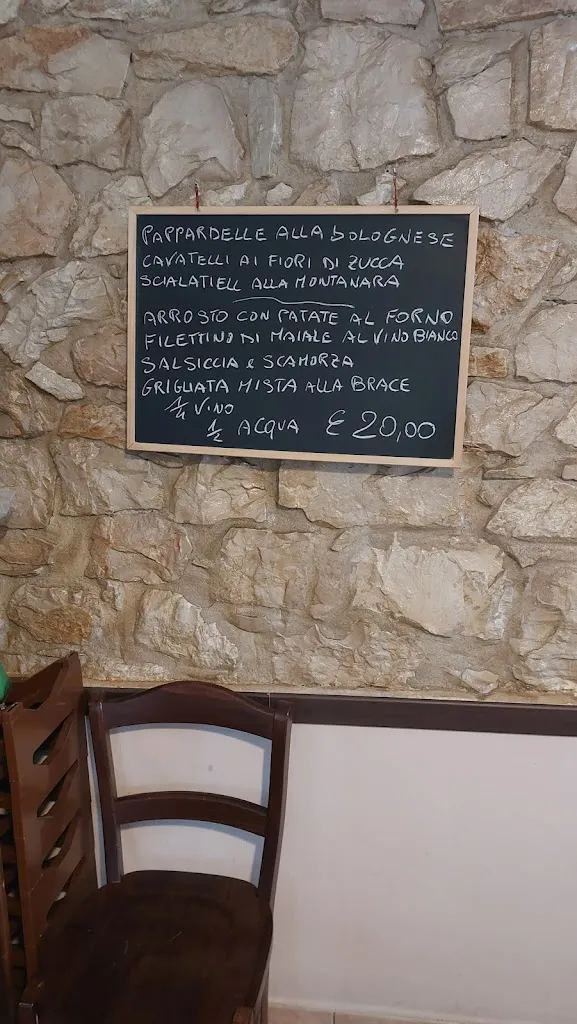 PAPPARDELLE ALLA BOLOGNESE
CAVATELLI AI FIORI DI ZUCCA
SCIALATIELL ALLA MONTANARA
ARROSTO CON PATATE AL FORNO
FILETTINO DI MAIALE AL VINO BIANCO
SALSICCIA e SCAMORZA
GRIGLIATA MISTA ALLA BRACE
1/4 VINO
1/2 ACQUA € 20,00